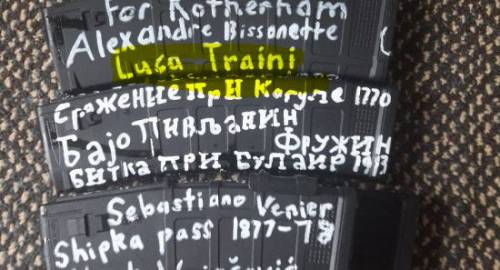 for Rotherham
Alexandre Bissonette
Luca Traini
Сражение при Когуле 1770
Бајо Пивљанин
Фружин
Битка при Булаир 1913
Sebastiano Venier
Shipka pass 1877-78